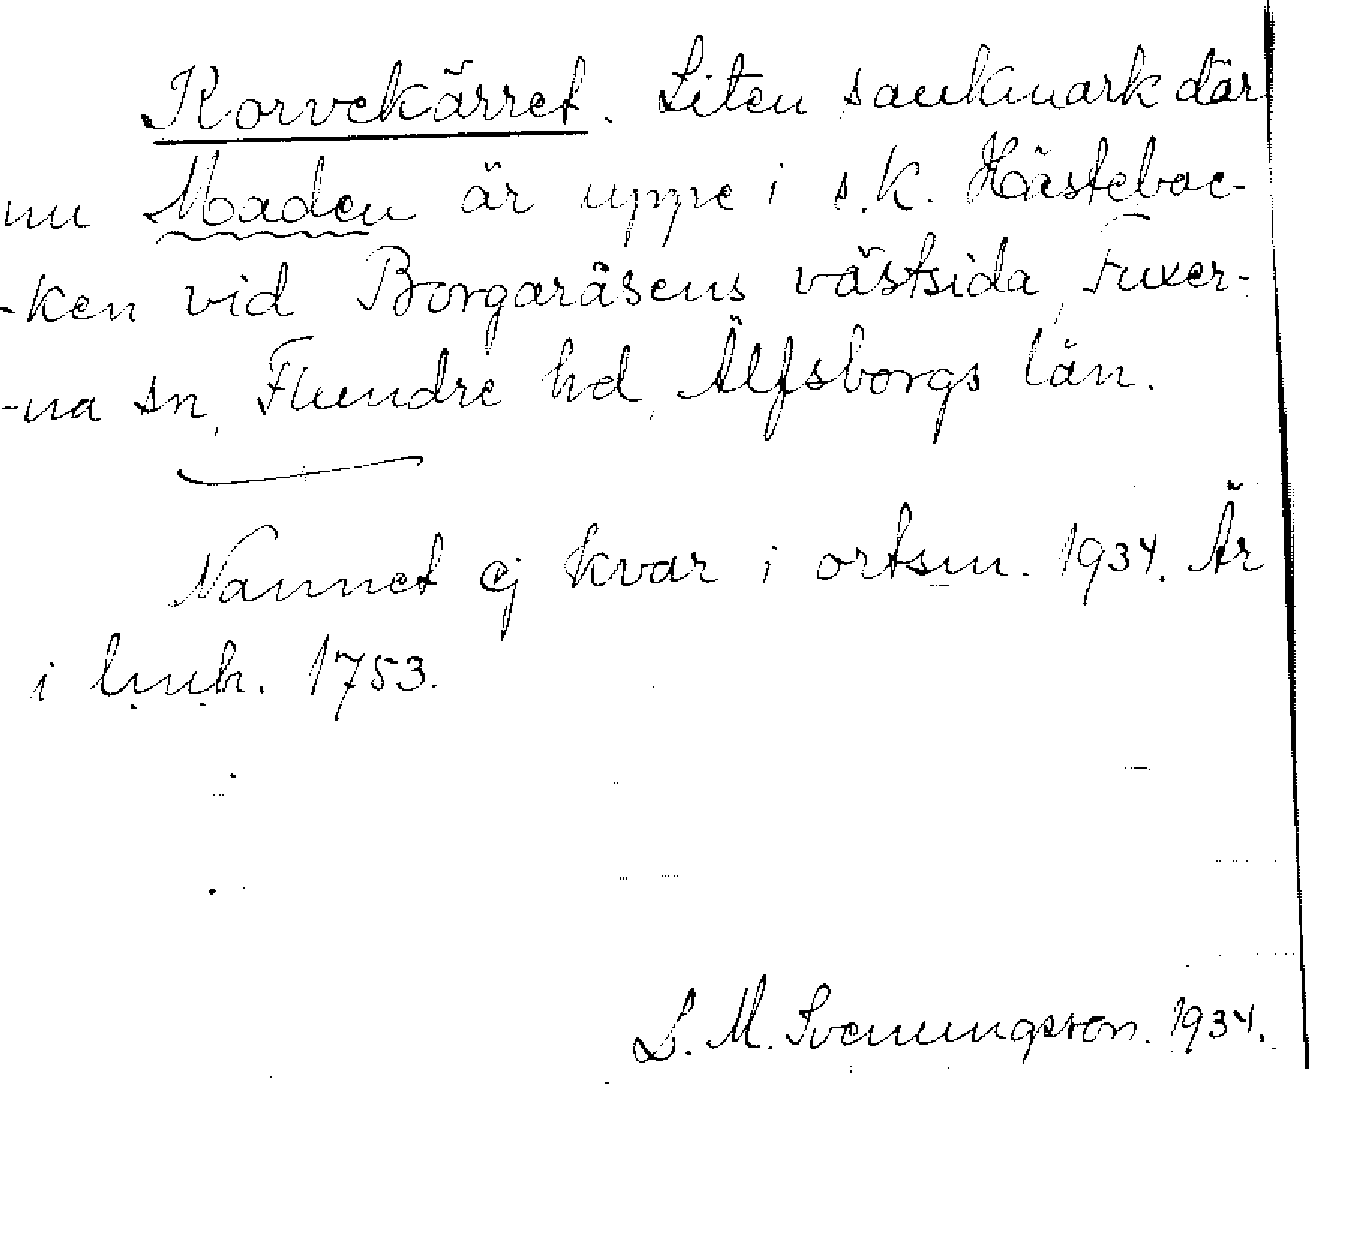 Korvekärret. Liten sankmark där
nu Maden är uppe i s.k. Hästebac-
-ken vid Borgaråsens västsida, Fuxer-
-na sn, Flundre hd, Älfsborgs län.
Namnet ej kvar i ortsm. 1934. Är
i lmk. 1753.
L. M. Svenungsson. 1934.